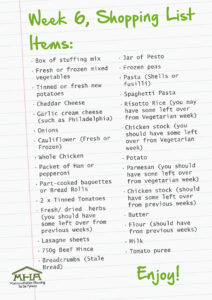 Week 6, Shopping List
Items:
· Box of stuffing mix
· Fresh or frozen mixed
vegetables
· Tinned or fresh new
potatoes
· Cheddar Cheese
· Garlic cream cheese
(such as Philadelphia)
· Onions
· Cauliflower (Fresh or
Frozen)
· Whole Chicken
· Packet of Ham or
pepperoni
· Part-cooked baguettes
or Bread Rolls
· 2 x Tinned Tomatoes
· Fresh/ dried herbs
(you should have
some left over from
previous weeks)
· Lasagne sheets
· 750g Beef Mince
· Breadcrumbs (Stale
Bread)
· Jar of Pesto
· Frozen peas
· Pasta (Shells or
fusilli)
· Spaghetti Pasta
· Risotto Rice (you may
have some left over
from Vegetarian week)
· Chicken stock (you
should have some left
over from Vegetarian
week)
· Potato
· Parmesan (you should
have some left over
from vegetarian week)
· Chicken stock (should
have some left over
from previous weeks)
· Butter
· Flour (should have
from previous weeks)
· Milk
· Tomato puree
MHA
Enjoy!